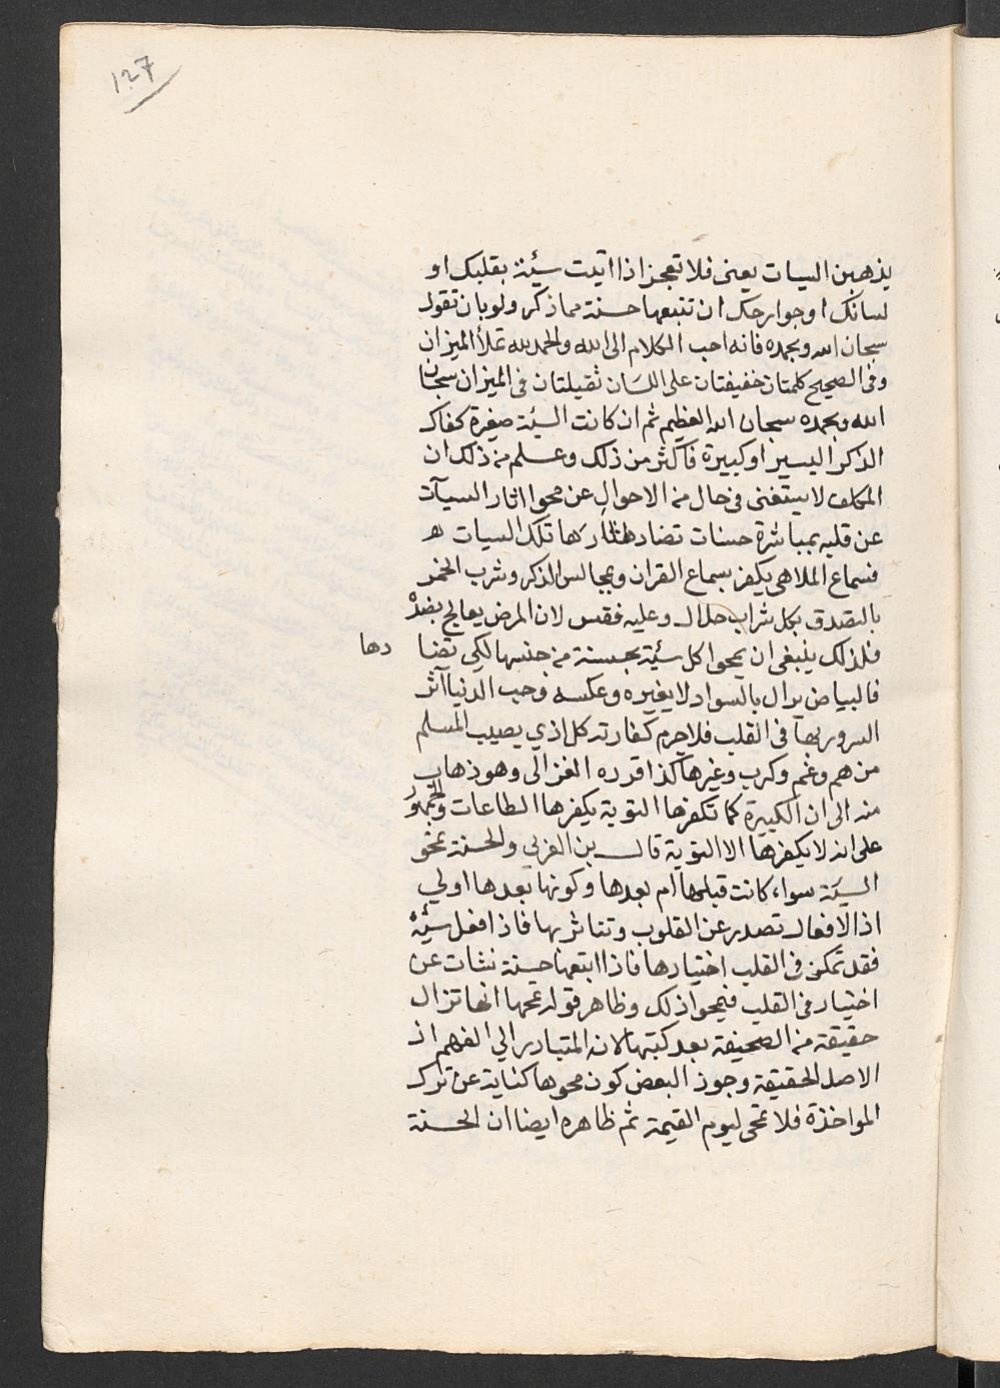 127
يذهبن السيات يعنى فلا تعجز اذا اتيت سيئة بقلبك او
لسانك او جوارحك ان تتبعها حسنة مما ذكر ولو بان تقول
سبحان الله وبحمده فانه احب الكلام الى الله والحمد لله تملأ الميزان
وفى الصحيح كلمتان خفيفتان على اللسان ثقيلتان فى الميزان سبحان
الله وبحمده سبحان الله العظيم ثم ان كانت السيئة صغيرة كفاك
الذكر اليسير او كبيرة فاكثر من ذلك وعلم من ذلك ان
المكلف لا يستغنى فى حال من الاحوال عن محوا اثار السيآت
عن قلبه بمباشرة حسنات تضاد اثارها تلك السيات ه
فسماع الملاهى يكفر بسماع القران ومجالس الذكر وشرب الخمر
بالتصدق بكل شراب حلال وعليه فقس لان المرض يعالج بضده
فلذلك ينبغى ان يمحوا كل سيئة بحسنة من جنسها لكى تضا دها
فالبياض يزال بالسواد لا بغيره وعكسه وحب الدنيا آثر
السرور بها فى القلب فلا جرم كفارته كل اذي يصيب المسلم
من هم وغم وكرب وغيرها كذا قرره الغزالى وهو ذهاب
منه الى ان الكبيرة كما تكفرها التوبة يكفرها الطاعات والجمهور
على انه لا يكفرها الا التوبة قال بن العربي والحسنة تمحو
السيئة سواء كانت قبلها ام بعدها وكونها بعدها اولي
اذ الافعال تصدر عن القلوب وتتاثر بها فاذا فعل سيئة
فقد تمكن فى القلب اختيارها فاذا اتبعها حسنة نشات عن
اختيار فى القلب فيمحوا ذلك وظاهر قوله تمحها انها تزال
حقيقة من الصحيفة بعد كتبها لانه المتبادر الي الفهم اذ
الاصل الحقيقة وجوز البعض كون محوها كناية عن ترك
المواخذة فلا تمحى ليوم القيمة ثم ظاهره ايضا ان الحسنة